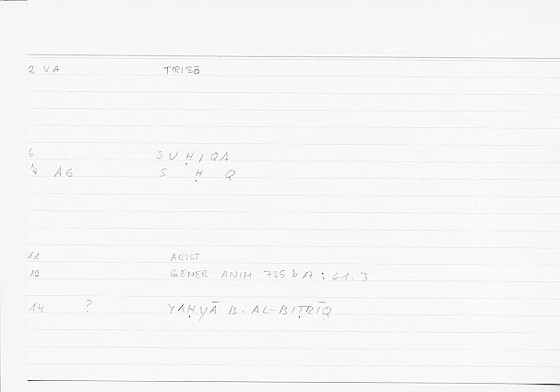 2 VA TRIBŌ
6 SUḤIQA
7 AG S Ḥ Q
11 ARIST
12 GENER ANIM 725 b A : 61.3
14 ? YAḤYĀ B. AL-BIṬRĪQ